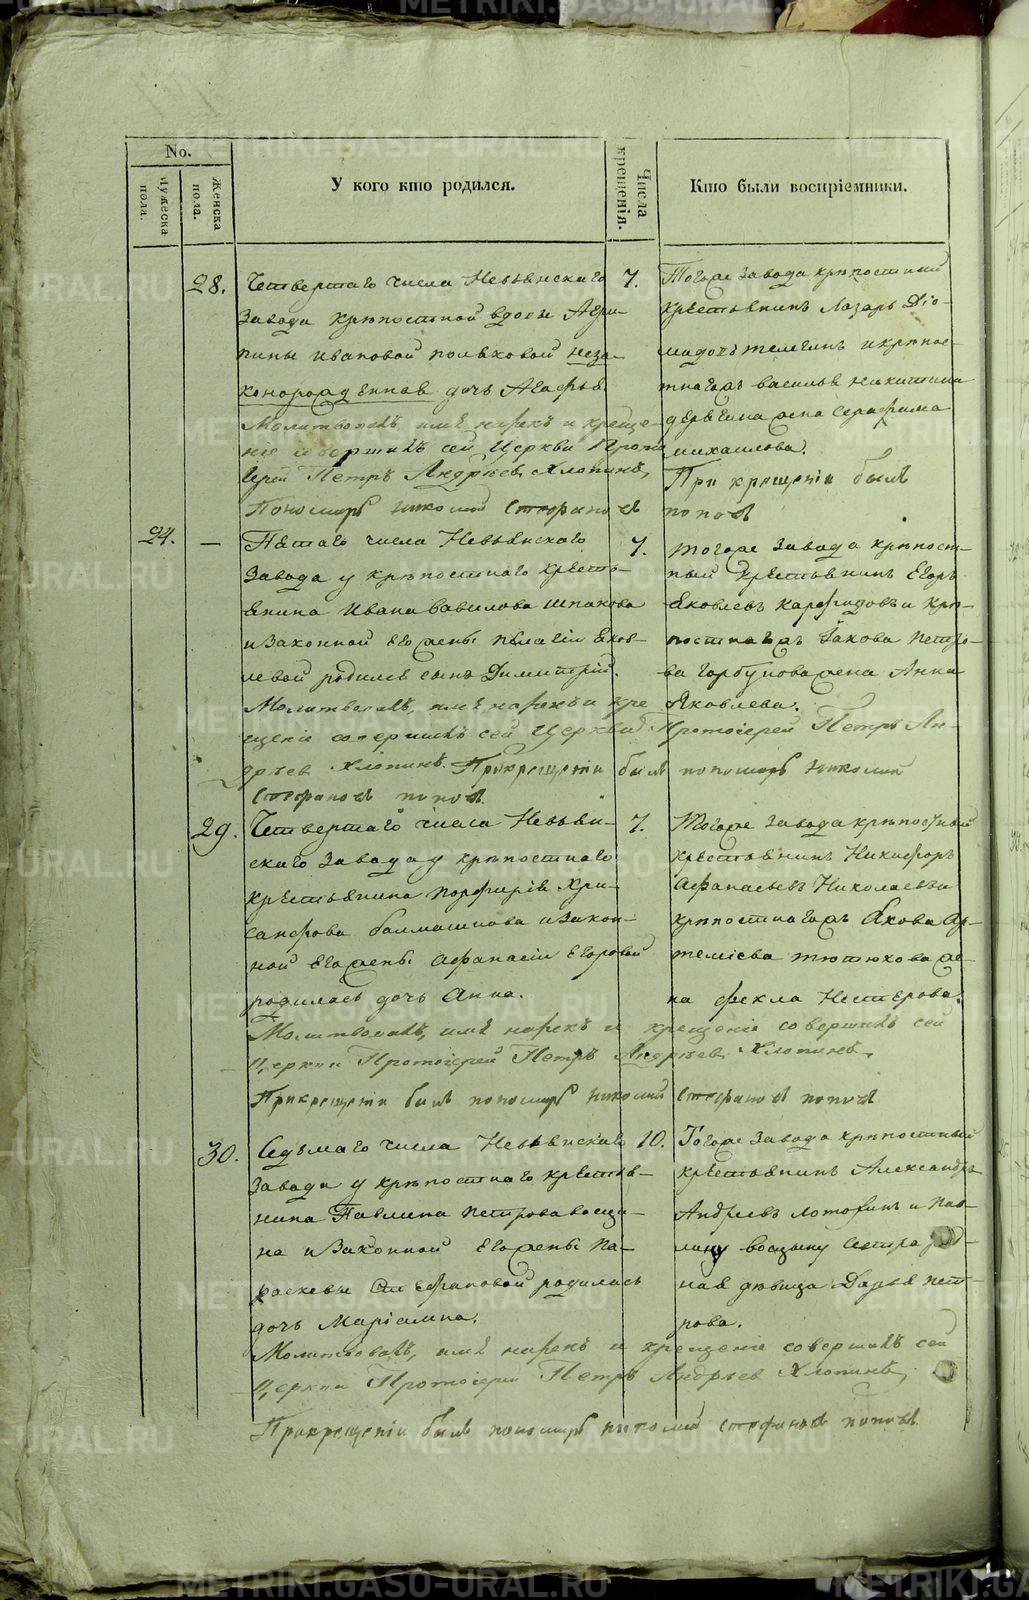 No.
Мужеска пола.
Женска пола.
У кого кто родился.
Числа крещенія.
Кто были воспріемники.
28.
Четвертаго числа Невьянскаго
завода крѣпостной вдовы Агри-
пины Ивановой Поляковой неза-
коннорожденная дочь Агафья.
Молитвовалъ, имя нарекъ и креще-
ніе совершилъ сей Церкви Прото
іерей Петръ Андрѣевъ Хлопинъ,
Пономарь Николай Стефановъ
7.
Тогоже завода крѣпостный
крестьянинъ Лазарь Діо-
мидовъ Телегинъ и крѣпос-
тнагожъ Василья Никитина
жена Серафима
Михаилова.
При крещеніи былъ
поповъ
24.
—
Пятаго числа Невьянскаго
завода у крѣпостнаго кресть-
янина Ивана Савилова Шпакова
и законной его жены Пелагіи Яков-
левой родился сынъ Димитрій.
Молитвовалъ, имя нарекъ и кре
щеніе совершилъ сей Церкви Протоіерей Петръ Ан-
дрѣевъ Хлопинъ. При крещеніи былъ пономарь Николай
Стефановъ поповъ
7.
тогоже завода крѣпост-
ный крестьянинъ Егоръ
Яковлевъ и крѣ-
постнагожъ Іакова Петро-
ва Горбунова жена Анна
Яковлева.
29.
Четвертаго числа Невьян-
скаго завода у крѣпостнаго
крестьянина Порфирія Хри-
санфова Балмашнова и закон-
ной его жены Афанасіи Егоровой
родилась дочь Анна.
Молитвовалъ, имя нарекъ и крещеніе совершилъ сей
Церкви Протоіерей Петръ Андрѣевъ Хлопинъ,
При крещеніи былъ пономарь Николай Стефановъ поповъ
7.
Тогоже завода крѣпостный
крестьянинъ Никифоръ
Афанасьевъ Николаевъ и
крѣпостнагожъ Якова Ар-
теміева Тютюкова же-
на Фекла Нестерова.
30.
Седьмаго числа Невьянскаго
завода у крѣпостнаго крестья-
нина Павлина Петрова Восци-
на и законной его жены Па-
раскевы Стефановой родилась
дочь Маріамна.
Молитвовалъ, имя нарекъ и крещеніе совершилъ сей
Церкви Протоіерей Петръ Андрѣевъ Хлопинъ,
При крещеніи былъ пономарь Николай Стефановъ поповъ
10.
Тогоже завода крѣпостный
крестьянинъ Александръ
Андреевъ и Пав-
лину Восцыну сестра род-
ная дѣвица Дарья Пет-
рова.
METRIKI.GASO-URAL.RU